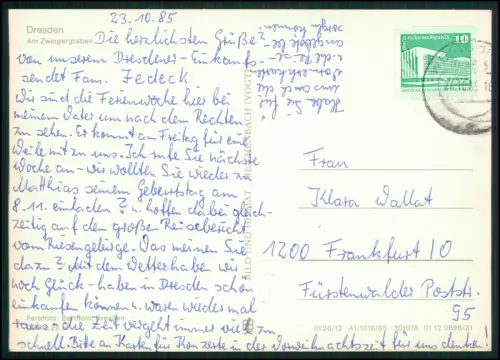 23.10.85
Dresden
Am Zwingergraben
Die herzlichsten Grüße
von unserem Dresdener-Einkaufs-
sendet Fam. Jedeck
Wir sind die Ferienwoche hier bei
meinem Vater um nach dem Rechten
zu sehen. Er kommt am Freitag für eine
Weile mit zu uns. Ich rufe Sie nächste
Woche an - wir wollten Sie wieder zu
Matthias seinem Geburtstag am
8.11. einladen? u. hoffen dabei gleich-
zeitig auf den großen Reisebericht
vom Riesengebirge. Was meinen Sie
dazu? Mit dem Wetter haben wir
noch Glück - haben in Dresden schön
einkaufen können u. waren wieder mal
raus. die Zeit vergeht immer viel zu
schnell. Bitte an Karten für Konzerte in der Vorweihnachtszeit für uns denken!
Habe Sie für
uns auch die
u. die
angebote be-
sorgen können?
10
Frau
Klara Wallat
1200 Frankfurt/O
Fürstenwalder Poststr.
95
BILD UND HEIMAT REICHENBACH (VOGTL)
III/26/13 A1/1018/85 301018 01 12 0896(3)